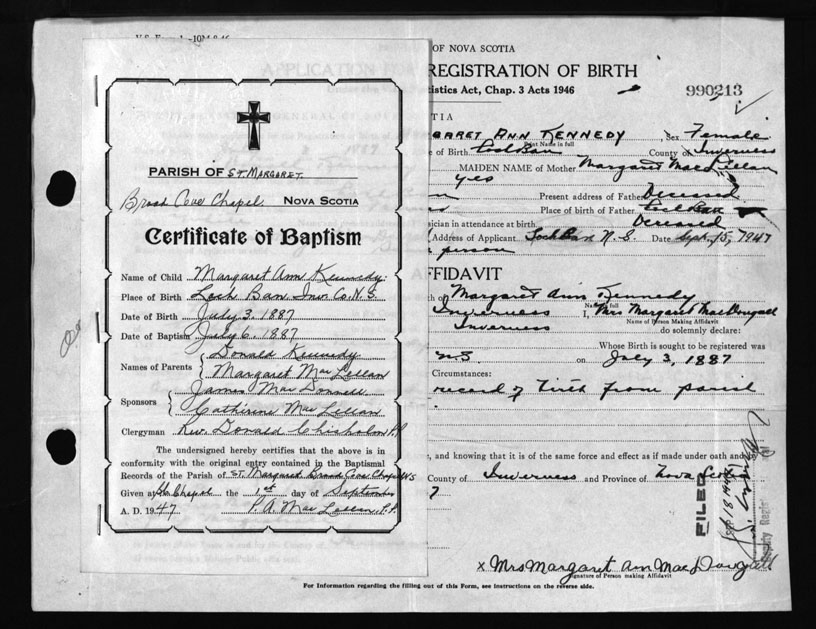 PARISH OF ST. MARGARET.
Broad Cove Chapel. NOVA SCOTIA
Certificate of Baptism
Name of Child Margaret Ann Kennedy.
Place of Birth Loch Ban, Inv. Co. N.S.
Date of Birth July 3, 1887
Date of Baptism July 6, 1887
Donald Kennedy
Names of Parents
Margaret MacLellan
James MacDonnell
Sponsors
Catherine MacLellan
Clergyman Rev. Donald Chisholm P.P.
The undersigned hereby certifies that the above is in
conformity with the original entry contained in the Baptismal
Records of the Parish of St. Margaret Broad Cove Chapel N.S
Given at Chapel the 1st day of September
A. D. 1947 P.P.
OF NOVA SCOTIA
REGISTRATION OF BIRTH
istics Act, Chap. 3 Acts 1946
990213
TIA
GARET ANN KENNEDY, Sex Female
Print Name in full
e of Birth Loch Ban County of Inverness
MAIDEN NAME of Mother Margaret MacLellan
yes
Present address of Father Deceased
Place of birth of Father Loch Ban
sician in attendance at birth Deceased
Address of Applicant Loch Ban N.S. Date Sept. 15, 1947
person
FFIDAVIT
h of Margaret Ann Kennedy
Name in full
Inverness I, Mrs Margaret MacDougall
Name of Person Making Affidavit
Inverness do solemnly declare:
Whose Birth is sought to be registered was
N.S. on July 3, 1887
Circumstances:
record of birth from parish
e, and knowing that it is of the same force and effect as if made under oath and
County of Inverness and Province of Nova Scotia
7
FILED
x Mrs Margaret Ann MacDougall
Signature of Person making Affidavit
For Information regarding the filling out of this Form, see instructions on the reverse side.